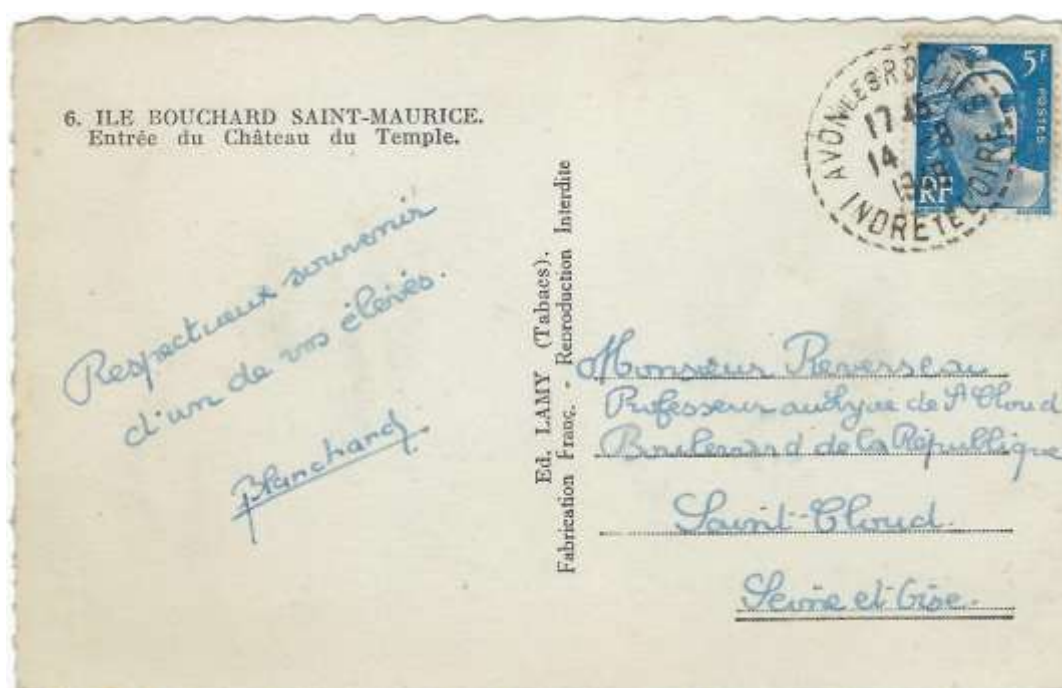 6. ILE BOUCHARD SAINT-MAURICE.
Entrée du Château du Temple.
Respectueux souvenir
d'un de vos élèves.
Blanchard
Ed. LAMY (Tabacs).
Fabrication Franç. - Reproduction Interdite
AVON LES ROCHES
17 45
14 8
INDRE ET LOIRE
5F
POSTES
RF
Monsieur Reverseau
Professeur au Lycée de St Cloud
Boulevard de la République
Saint-Cloud.
Seine et Oise.